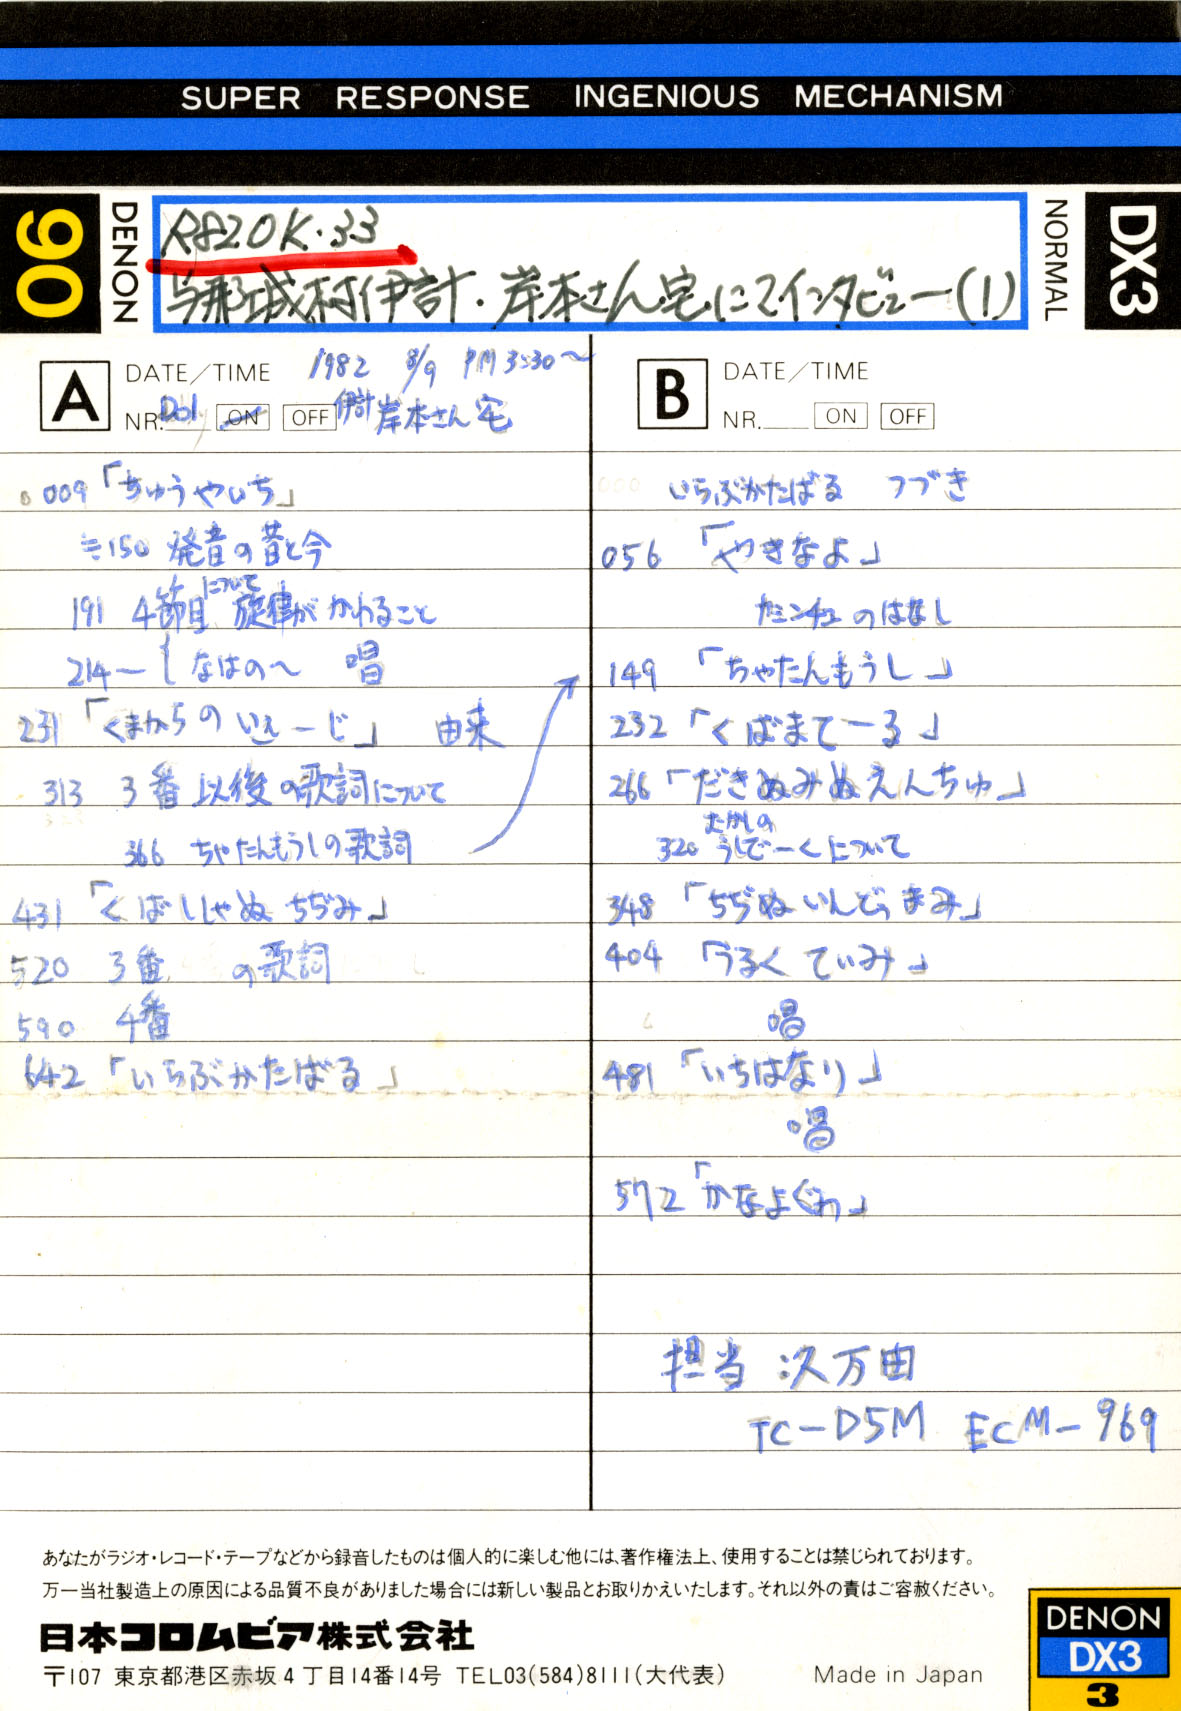 SUPER RESPONSE INGENIOUS MECHANISM
90
DENON
R820K・33
与那城村伊計・岸本さん宅にてインタビュー(1)
NORMAL
DX3
A
DATE/TIME 1982 8/9 PM 3:30〜
NR. Dolby ON OFF 伊計 岸本さん宅
009「ちゅうやいち」
≒150 発音の昔と今
191 4節目について旋律がかわること
214〜 なはの〜 唱
231「くまからのいえーじ」 由来
313 3番以後の歌詞について
366 ちゃたんもうしの歌詞
431「くばしぃしゃぬちぢみ」
520 3番 の歌詞
590 4番
642「いらぶかたばる」
B
DATE/TIME
NR. ON OFF
000 いらぶかたばる つづき
056「やきなよ」
カミンチュのはなし
149「ちゃたんもうし」
232「くばまてーる」
266「だきぬみぬえんちゅ」
320 むかしのうしでーくについて
348「ちぢぬいんどぅまみ」
404「うるくてぃみ」
唱
481「いちはなり」
唱
572「かなよぐゎ」
担当 次万由
TC-D5M ECM-969
あなたがラジオ・レコード・テープなどから録音したものは個人的に楽しむ他には、著作権法上、使用することは禁じられております。
万一当社製造上の原因による品質不良がありました場合には新しい製品とお取りかえいたします。それ以外の責はご容赦ください。
日本コロムビア株式会社
〒107 東京都港区赤坂4丁目14番14号 TEL03(584)8111(大代表)
Made in Japan
DENON
DX3
3